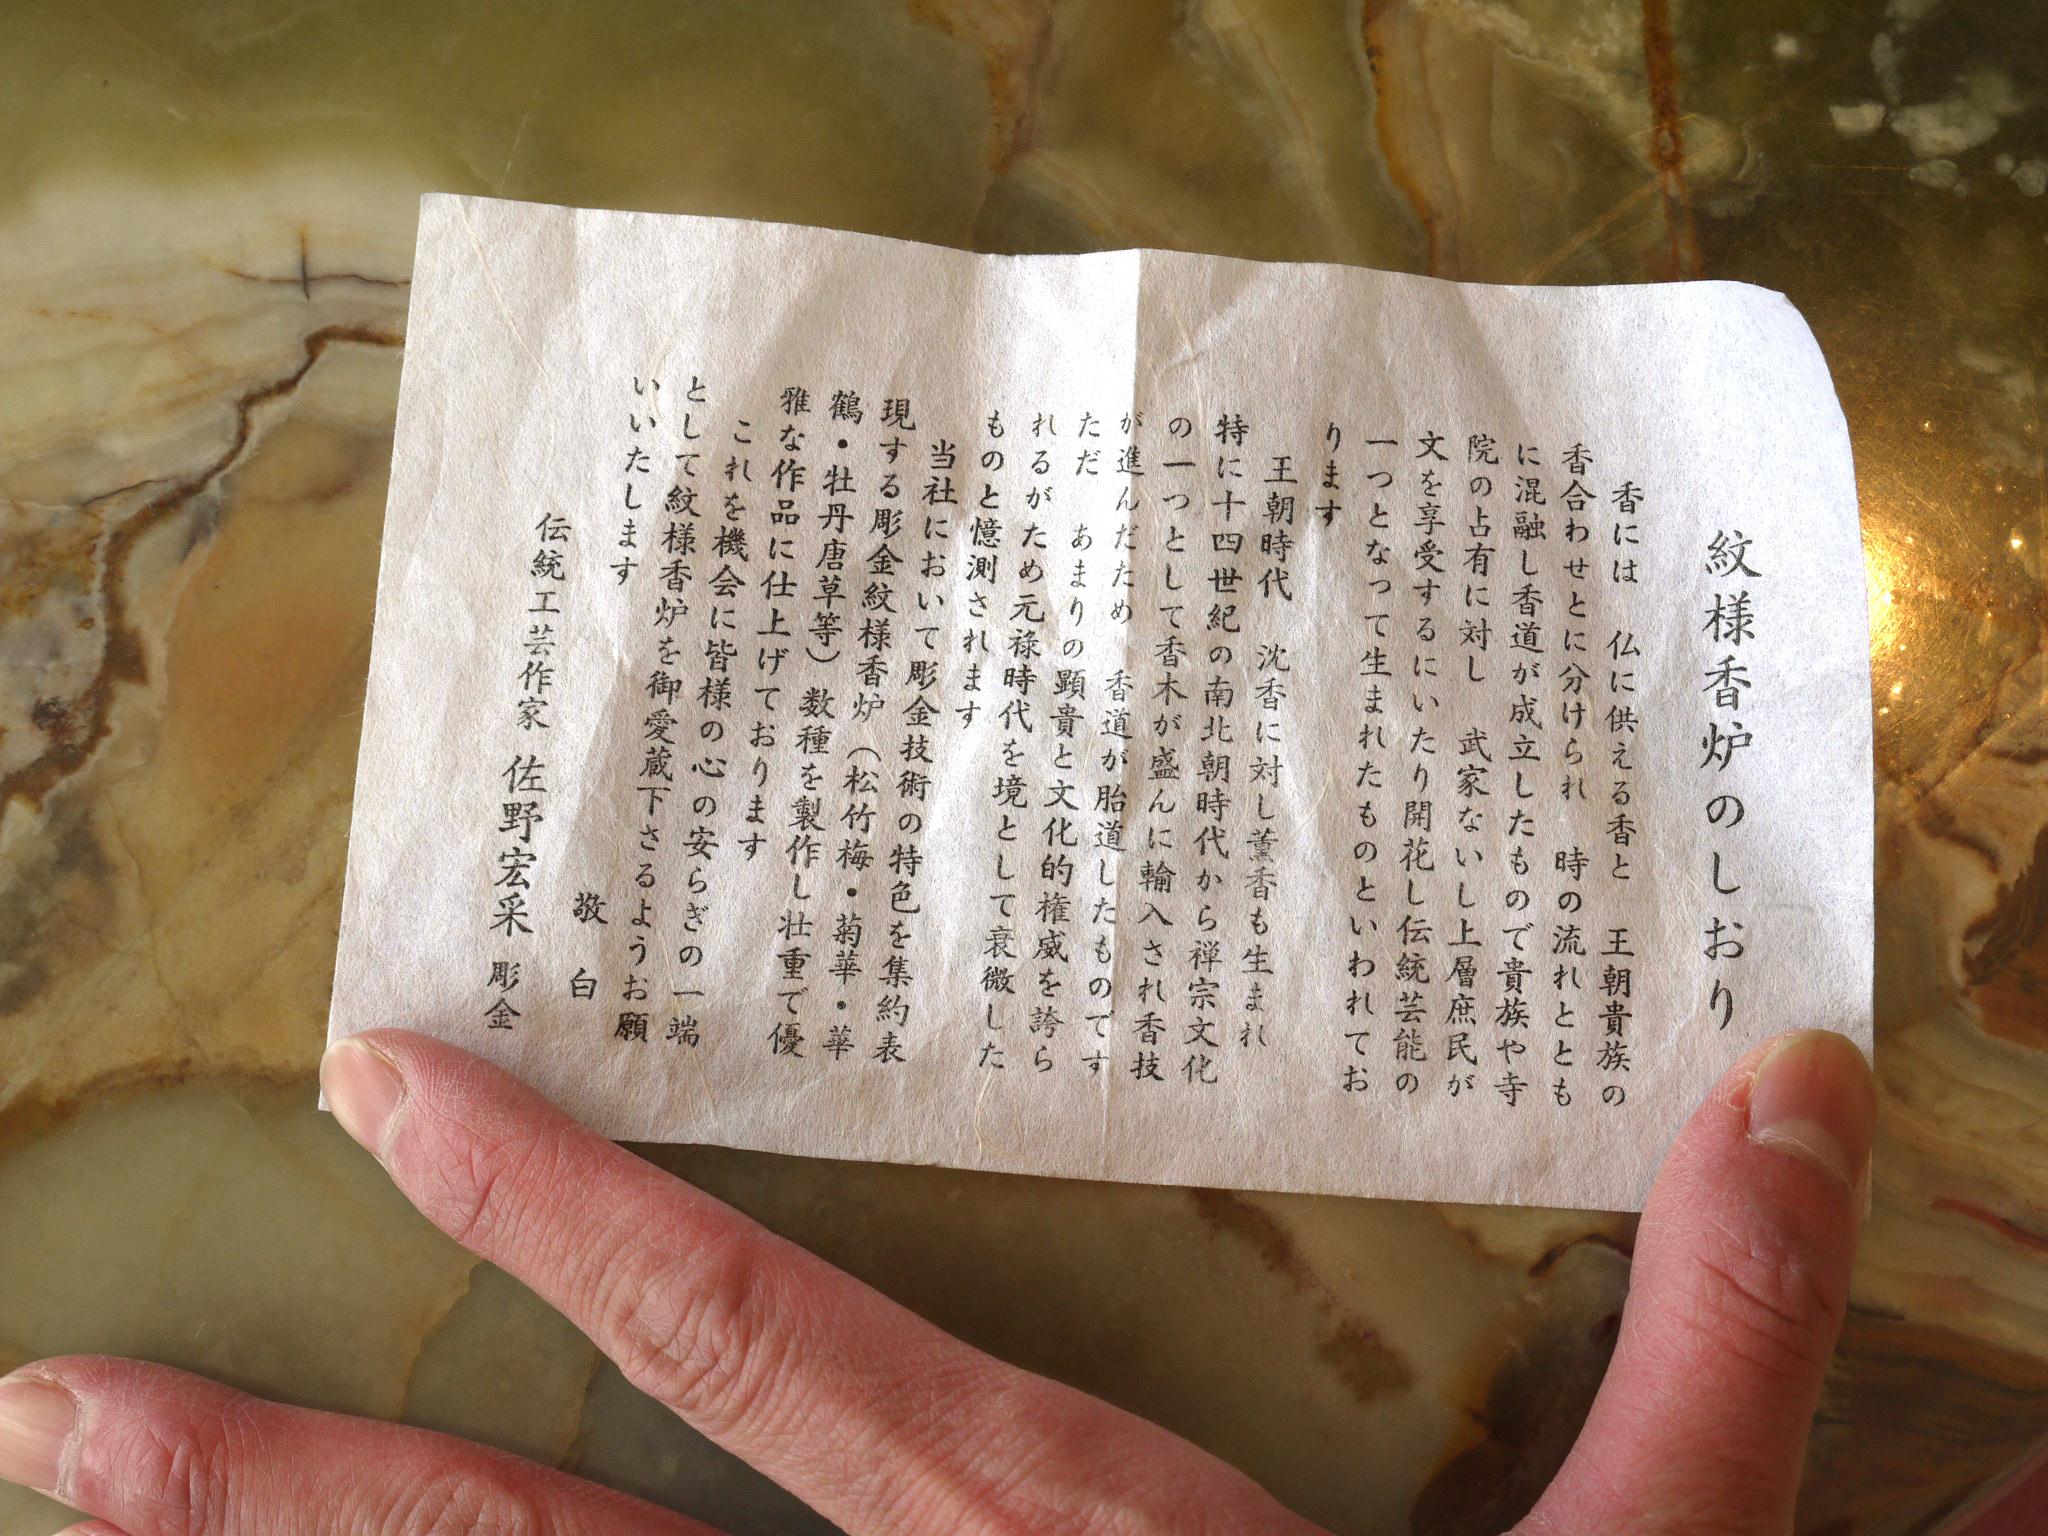 紋様香炉のしおり
香には　仏に供える香と　王朝貴族の
香合わせとに分けられ　時の流れととも
に混融し香道が成立したもので貴族や寺
院の占有に対し　武家ないし上層庶民が
文を享受するにいたり開花し伝統芸能の
一つとなって生まれたものといわれてお
ります
王朝時代　沈香に対し薫香も生まれ
特に十四世紀の南北朝時代から禅宗文化
の一つとして香木が盛んに輸入され香技
が進んだため　香道が胎道したものです
ただ　あまりの顕貴と文化的権威を誇ら
れるがため元禄時代を境として衰微した
ものと憶測されます
当社において彫金技術の特色を集約表
現する彫金紋様香炉（松竹梅・菊華・華
鶴・牡丹唐草等）数種を製作し壮重で優
雅な作品に仕上げております
これを機会に皆様の心の安らぎの一端
として紋様香炉を御愛蔵下さるようお願
いいたします
敬　白
伝統工芸作家　佐野宏采　彫金